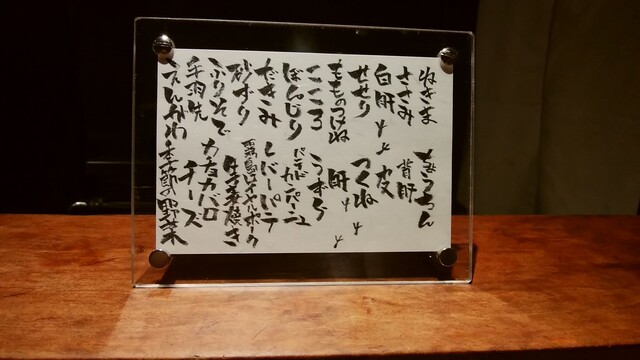 ねぎま ちょうちん
ささみ 背肝
白肝 皮
せせり つくね
もものつけね 肝
こころ うずら
ぼんじり パテドカンパーニュ
だきみ レバーパテ
砂ずり 霧島ロイヤルポーク
生姜焼き
ふりそで カチョカバロ
手羽先 チーズ
えんがわ 季節の野菜